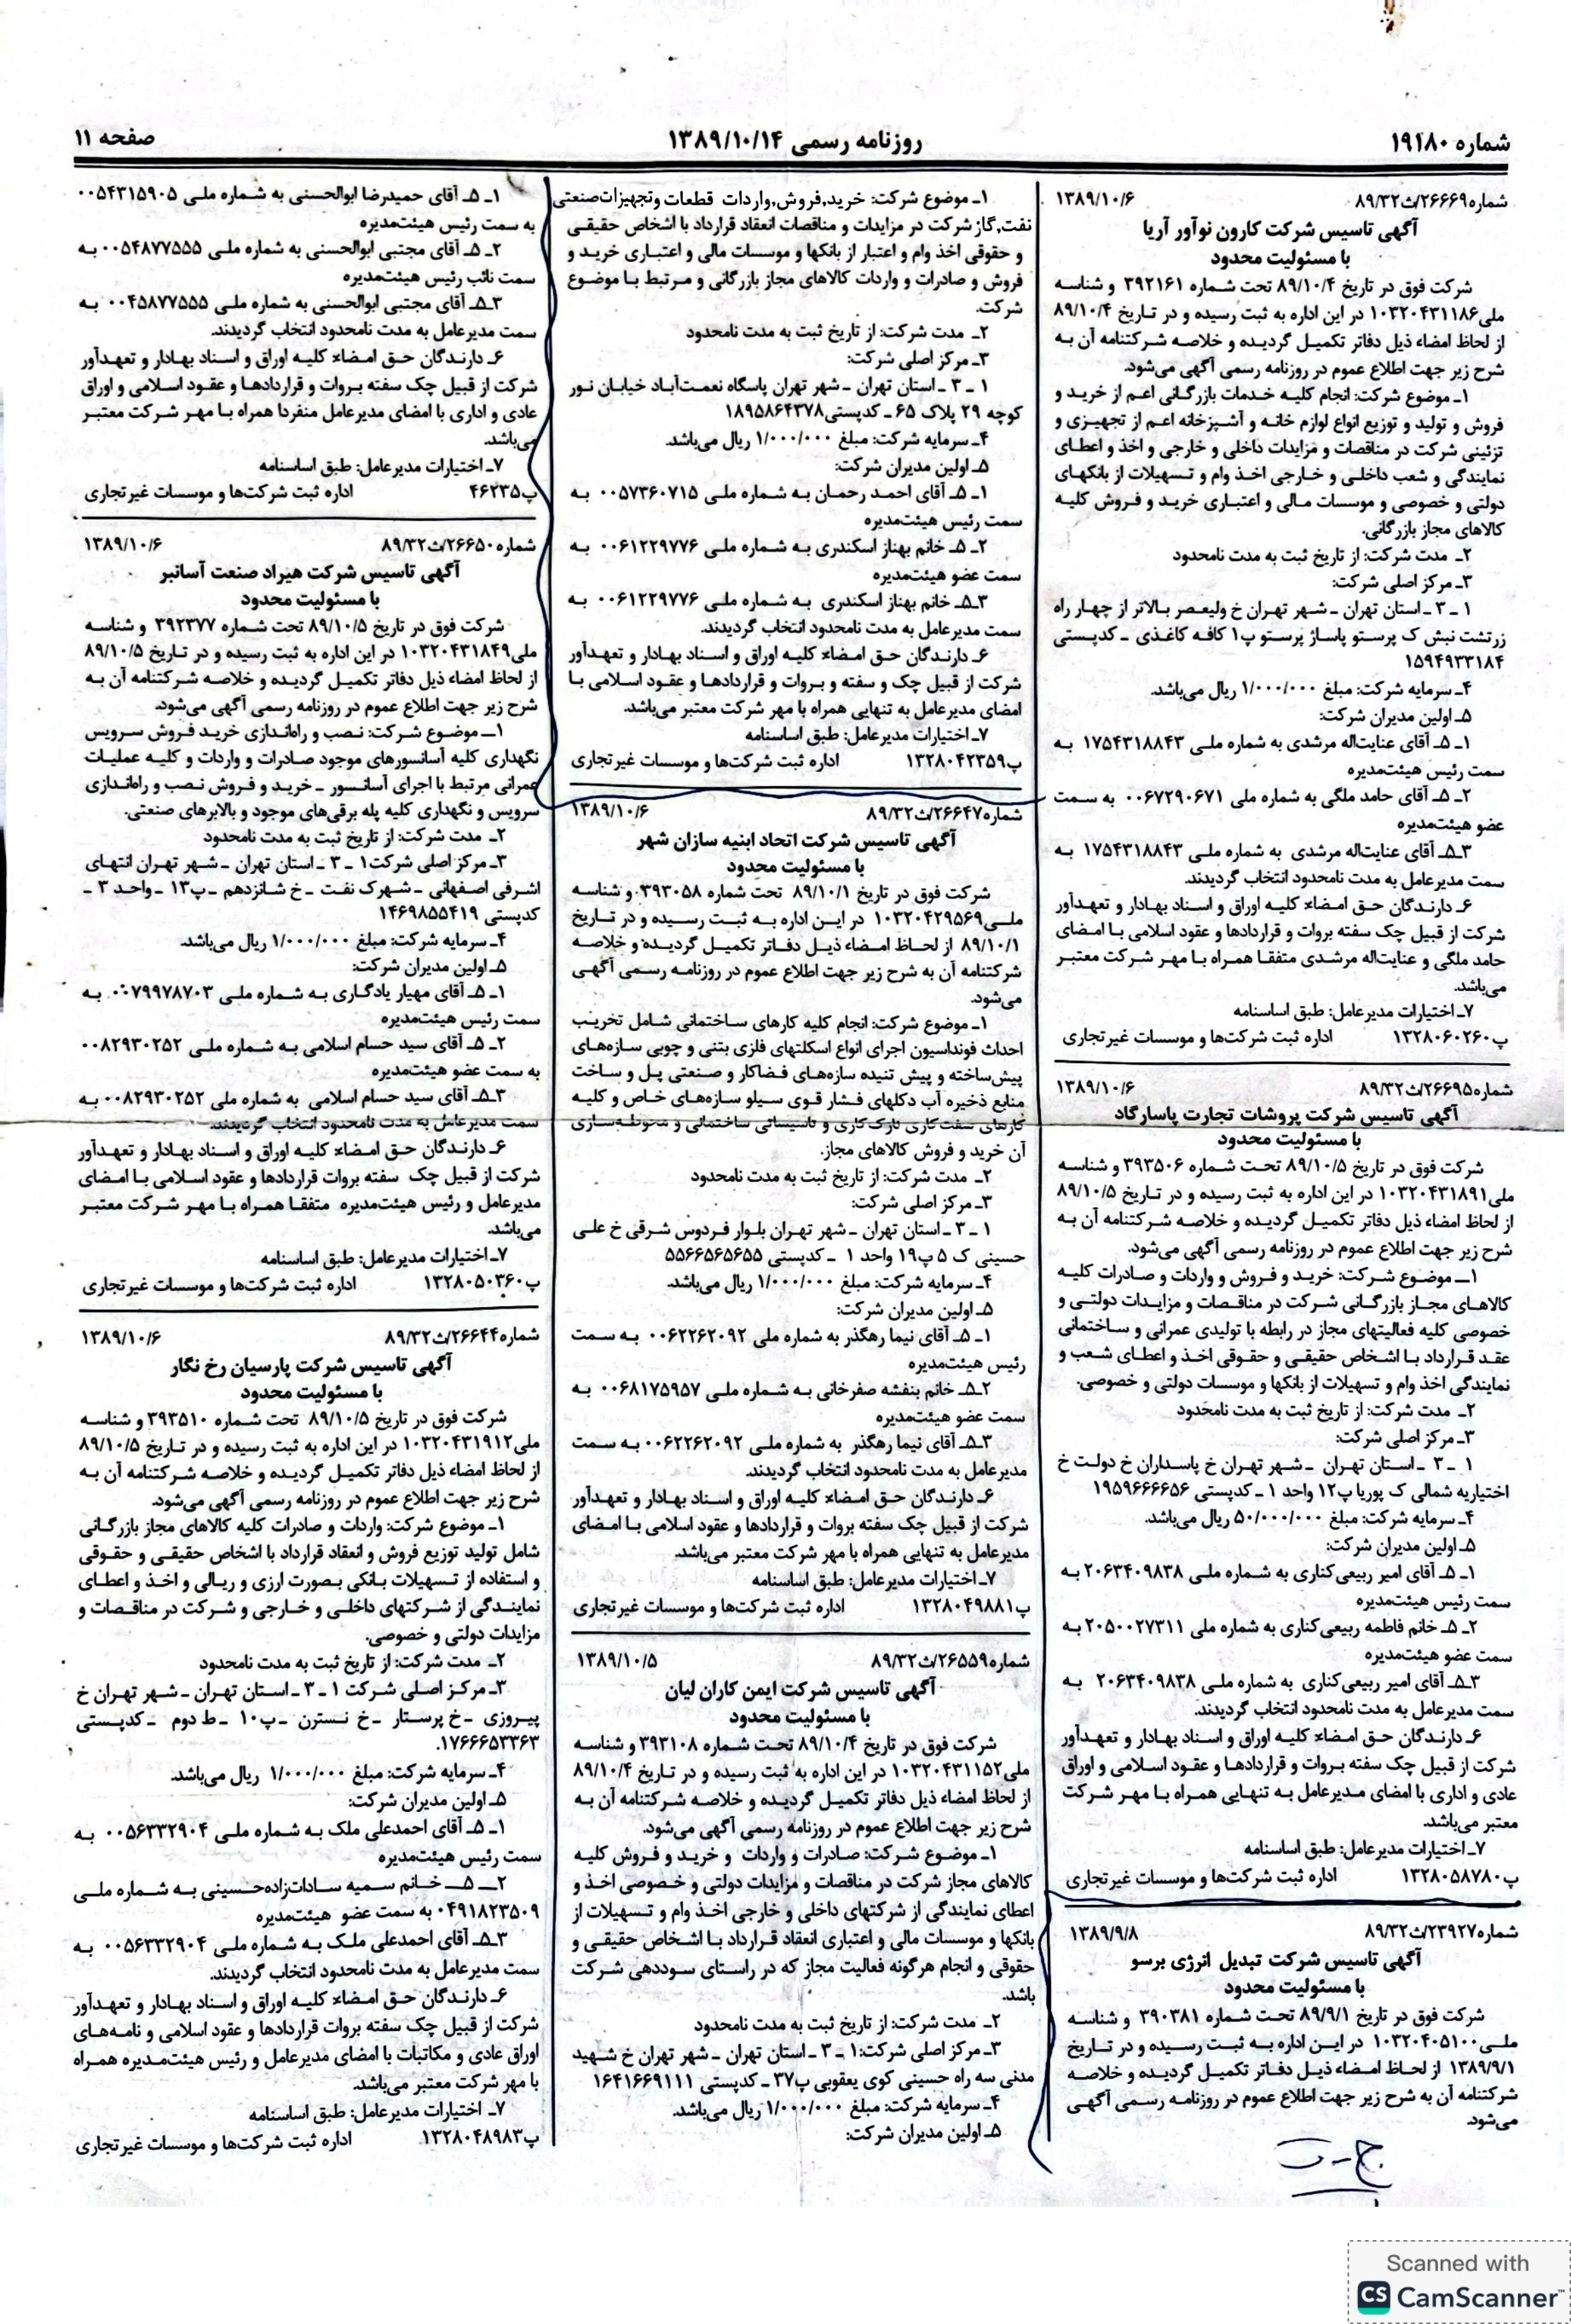 شماره ۱۹۱۸۰
روزنامه رسمی ۱۳۸۹/۱۰/۱۴
صفحه ۱۱
شماره۲۶۶۶۹/ث۸۹/۳۲ ۱۳۸۹/۱۰/۶
آگهی تاسیس شرکت کارون نوآور آریا
با مسئولیت محدود
شرکت فوق در تاریخ ۸۹/۱۰/۴ تحت شماره ۳۹۲۱۶۱ و شناسه
ملی۱۰۳۲۰۴۳۱۱۸۶ در این اداره به ثبت رسیده و در تاریخ ۸۹/۱۰/۴
از لحاظ امضاء ذیل دفاتر تکمیل گردیده و خلاصه شرکتنامه آن به
شرح زیر جهت اطلاع عموم در روزنامه رسمی آگهی می‌شود.
۱ـ موضوع شرکت: انجام کلیه خدمات بازرگانی اعم از خرید و
فروش و تولید و توزیع انواع لوازم خانه و آشپزخانه اعم از تجهیزی و
تزئینی شرکت در مناقصات و مزایدات داخلی و خارجی و اخذ و اعطای
نمایندگی و شعب داخلی و خارجی اخذ وام و تسهیلات از بانکهای
دولتی و خصوصی و موسسات مالی و اعتباری خرید و فروش کلیه
کالاهای مجاز بازرگانی.
۲ـ مدت شرکت: از تاریخ ثبت به مدت نامحدود
۳ـ مرکز اصلی شرکت:
۱ ـ ۳ ـ استان تهران ـ شهر تهران خ ولیعصر بالاتر از چهار راه
زرتشت نبش ک پرستو پاساژ پرستو پ۱ کافه کاغذی ـ کدپستی
۱۵۹۴۹۳۳۱۸۴
۴ـ سرمایه شرکت: مبلغ ۱/۰۰۰/۰۰۰ ریال می‌باشد.
۵ـ اولین مدیران شرکت:
۱ـ ۵ـ آقای عنایت‌اله مرشدی به شماره ملی ۱۷۵۴۳۱۸۸۴۳ به
سمت رئیس هیئت‌مدیره
۲ـ ۵ـ آقای حامد ملگی به شماره ملی ۰۰۶۷۲۹۰۶۷۱ به سمت
عضو هیئت‌مدیره
۳ـ۵ـ آقای عنایت‌اله مرشدی به شماره ملی ۱۷۵۴۳۱۸۸۴۳ به
سمت مدیرعامل به مدت نامحدود انتخاب گردیدند.
۶ـ دارندگان حق امضاء کلیه اوراق و اسناد بهادار و تعهدآور
شرکت از قبیل چک سفته بروات و قراردادها و عقود اسلامی با امضای
حامد ملگی و عنایت‌اله مرشدی متفقا همراه با مهر شرکت معتبر
می‌باشد.
۷ـ اختیارات مدیرعامل: طبق اساسنامه
پ۱۳۲۸۰۶۰۲۶۰ اداره ثبت شرکت‌ها و موسسات غیرتجاری
شماره۲۶۶۹۵/ث۸۹/۳۲ ۱۳۸۹/۱۰/۶
آگهی تاسیس شرکت پروشات تجارت پاسارگاد
با مسئولیت محدود
شرکت فوق در تاریخ ۸۹/۱۰/۵ تحت شماره ۳۹۳۵۰۶ و شناسه
ملی۱۰۳۲۰۴۳۱۸۹۱ در این اداره به ثبت رسیده و در تاریخ ۸۹/۱۰/۵
از لحاظ امضاء ذیل دفاتر تکمیل گردیده و خلاصه شرکتنامه آن به
شرح زیر جهت اطلاع عموم در روزنامه رسمی آگهی می‌شود.
۱ـ موضوع شرکت: خرید و فروش و واردات و صادرات کلیه
کالاهای مجاز بازرگانی شرکت در مناقصات و مزایدات دولتی و
خصوصی کلیه فعالیتهای مجاز در رابطه با تولیدی عمرانی و ساختمانی
عقد قرارداد با اشخاص حقیقی و حقوقی اخذ و اعطای شعب و
نمایندگی اخذ وام و تسهیلات از بانکها و موسسات دولتی و خصوصی.
۲ـ مدت شرکت: از تاریخ ثبت به مدت نامحدود
۳ـ مرکز اصلی شرکت:
۱ ـ ۳ ـ استان تهران ـ شهر تهران خ پاسداران خ دولت خ
اختیاریه شمالی ک پوریا پ۱۲ واحد ۱ ـ کدپستی ۱۹۵۹۶۶۶۶۵۶
۴ـ سرمایه شرکت: مبلغ ۵۰/۰۰۰/۰۰۰ ریال می‌باشد.
۵ـ اولین مدیران شرکت:
۱ـ ۵ـ آقای امیر ربیعی‌کناری به شماره ملی ۲۰۶۳۴۰۹۸۳۸ به
سمت رئیس هیئت‌مدیره
۲ـ ۵ـ خانم فاطمه ربیعی‌کناری به شماره ملی ۲۰۵۰۰۲۷۳۱۱ به
سمت عضو هیئت‌مدیره
۳ـ۵ـ آقای امیر ربیعی‌کناری به شماره ملی ۲۰۶۳۴۰۹۸۳۸ به
سمت مدیرعامل به مدت نامحدود انتخاب گردیدند.
۶ـ دارندگان حق امضاء کلیه اوراق و اسناد بهادار و تعهدآور
شرکت از قبیل چک سفته بروات و قراردادها و عقود اسلامی و اوراق
عادی و اداری با امضای مدیرعامل به تنهایی همراه با مهر شرکت
معتبر می‌باشد.
۷ـ اختیارات مدیرعامل: طبق اساسنامه
پ۱۳۲۸۰۵۸۷۸۰ اداره ثبت شرکت‌ها و موسسات غیرتجاری
شماره۲۳۹۲۷/ث۸۹/۳۲ ۱۳۸۹/۹/۸
آگهی تاسیس شرکت تبدیل انرژی برسو
با مسئولیت محدود
شرکت فوق در تاریخ ۸۹/۹/۱ تحت شماره ۳۹۰۳۸۱ و شناسه
ملی۱۰۳۲۰۴۰۵۱۰۰ در این اداره به ثبت رسیده و در تاریخ
۱۳۸۹/۹/۱ از لحاظ امضاء ذیل دفاتر تکمیل گردیده و خلاصه
شرکتنامه آن به شرح زیر جهت اطلاع عموم در روزنامه رسمی آگهی
می‌شود.
۱ـ موضوع شرکت: خرید,فروش,واردات قطعات وتجهیزات‌صنعتی
نفت,گاز شرکت در مزایدات و مناقصات انعقاد قرارداد با اشخاص حقیقی
و حقوقی اخذ وام و اعتبار از بانکها و موسسات مالی و اعتباری خرید و
فروش و صادرات و واردات کالاهای مجاز بازرگانی و مرتبط با موضوع
شرکت.
۲ـ مدت شرکت: از تاریخ ثبت به مدت نامحدود
۳ـ مرکز اصلی شرکت:
۱ ـ ۳ ـ استان تهران ـ شهر تهران پاسگاه نعمت‌آباد خیابان نور
کوچه ۲۹ پلاک ۶۵ ـ کدپستی۱۸۹۵۸۶۴۳۷۸
۴ـ سرمایه شرکت: مبلغ ۱/۰۰۰/۰۰۰ ریال می‌باشد.
۵ـ اولین مدیران شرکت:
۱ـ ۵ـ آقای احمد رحمان به شماره ملی ۰۰۵۷۳۶۰۷۱۵ به
سمت رئیس هیئت‌مدیره
۲ـ ۵ـ خانم بهناز اسکندری به شماره ملی ۰۰۶۱۲۲۹۷۷۶ به
سمت عضو هیئت‌مدیره
۳ـ۵ـ خانم بهناز اسکندری به شماره ملی ۰۰۶۱۲۲۹۷۷۶ به
سمت مدیرعامل به مدت نامحدود انتخاب گردیدند.
۶ـ دارندگان حق امضاء کلیه اوراق و اسناد بهادار و تعهدآور
شرکت از قبیل چک و سفته و بروات و قراردادها و عقود اسلامی با
امضای مدیرعامل به تنهایی همراه با مهر شرکت معتبر می‌باشد.
۷ـ اختیارات مدیرعامل: طبق اساسنامه
پ۱۳۲۸۰۴۲۳۵۹ اداره ثبت شرکت‌ها و موسسات غیرتجاری
شماره۲۶۶۴۷/ث۸۹/۳۲ ۱۳۸۹/۱۰/۶
آگهی تاسیس شرکت اتحاد ابنیه سازان شهر
با مسئولیت محدود
شرکت فوق در تاریخ ۸۹/۱۰/۱ تحت شماره ۳۹۳۰۵۸ و شناسه
ملی۱۰۳۲۰۴۲۹۵۶۹ در این اداره به ثبت رسیده و در تاریخ
۸۹/۱۰/۱ از لحاظ امضاء ذیل دفاتر تکمیل گردیده و خلاصه
شرکتنامه آن به شرح زیر جهت اطلاع عموم در روزنامه رسمی آگهی
می‌شود.
۱ـ موضوع شرکت: انجام کلیه کارهای ساختمانی شامل تخریب
احداث فونداسیون اجرای انواع اسکلتهای فلزی بتنی و چوبی سازه‌های
پیش‌ساخته و پیش تنیده سازه‌های فضاکار و صنعتی پل و ساخت
منابع ذخیره آب دکلهای فشار قوی سیلو سازه‌های خاص و کلیه
کارهای سفت‌کاری نازک‌کاری و تاسیساتی ساختمانی و محوطه‌سازی
آن خرید و فروش کالاهای مجاز.
۲ـ مدت شرکت: از تاریخ ثبت به مدت نامحدود
۳ـ مرکز اصلی شرکت:
۱ ـ ۳ ـ استان تهران ـ شهر تهران بلوار فردوس شرقی خ علی
حسینی ک ۵ پ۱۹ واحد ۱ ـ کدپستی ۵۵۶۶۵۶۵۶۵۵
۴ـ سرمایه شرکت: مبلغ ۱/۰۰۰/۰۰۰ ریال می‌باشد.
۵ـ اولین مدیران شرکت:
۱ـ ۵ـ آقای نیما رهگذر به شماره ملی ۰۰۶۲۲۶۲۰۹۲ به سمت
رئیس هیئت‌مدیره
۲ـ۵ـ خانم بنفشه صفرخانی به شماره ملی ۰۰۶۸۱۷۵۹۵۷ به
سمت عضو هیئت‌مدیره
۳ـ۵ـ آقای نیما رهگذر به شماره ملی ۰۰۶۲۲۶۲۰۹۲ به سمت
مدیرعامل به مدت نامحدود انتخاب گردیدند.
۶ـ دارندگان حق امضاء کلیه اوراق و اسناد بهادار و تعهدآور
شرکت از قبیل چک سفته بروات و قراردادها و عقود اسلامی با امضای
مدیرعامل به تنهایی همراه با مهر شرکت معتبر می‌باشد.
۷ـ اختیارات مدیرعامل: طبق اساسنامه
پ۱۳۲۸۰۴۹۸۸۱ اداره ثبت شرکت‌ها و موسسات غیرتجاری
شماره۲۶۵۵۹/ث۸۹/۳۲ ۱۳۸۹/۱۰/۵
آگهی تاسیس شرکت ایمن کاران لیان
با مسئولیت محدود
شرکت فوق در تاریخ ۸۹/۱۰/۴ تحت شماره ۳۹۳۱۰۸ و شناسه
ملی۱۰۳۲۰۴۳۱۱۵۲ در این اداره به ثبت رسیده و در تاریخ ۸۹/۱۰/۴
از لحاظ امضاء ذیل دفاتر تکمیل گردیده و خلاصه شرکتنامه آن به
شرح زیر جهت اطلاع عموم در روزنامه رسمی آگهی می‌شود.
۱ـ موضوع شرکت: صادرات و واردات و خرید و فروش کلیه
کالاهای مجاز شرکت در مناقصات و مزایدات دولتی و خصوصی اخذ و
اعطای نمایندگی از شرکتهای داخلی و خارجی اخذ وام و تسهیلات از
بانکها و موسسات مالی و اعتباری انعقاد قرارداد با اشخاص حقیقی و
حقوقی و انجام هرگونه فعالیت مجاز که در راستای سوددهی شرکت
باشد.
۲ـ مدت شرکت: از تاریخ ثبت به مدت نامحدود
۳ـ مرکز اصلی شرکت:۱ ـ ۳ ـ استان تهران ـ شهر تهران خ شهید
مدنی سه راه حسینی کوی یعقوبی پ۳۷ ـ کدپستی ۱۶۴۱۶۶۹۱۱۱
۴ـ سرمایه شرکت: مبلغ ۱/۰۰۰/۰۰۰ ریال می‌باشد.
۵ـ اولین مدیران شرکت:
۱ـ ۵ـ آقای حمیدرضا ابوالحسنی به شماره ملی ۰۰۵۴۳۱۵۹۰۵
به سمت رئیس هیئت‌مدیره
۲ـ ۵ـ آقای مجتبی ابوالحسنی به شماره ملی ۰۰۵۴۸۷۷۵۵۵ به
سمت نائب رئیس هیئت‌مدیره
۳ـ۵ـ آقای مجتبی ابوالحسنی به شماره ملی ۰۰۴۵۸۷۷۵۵۵ به
سمت مدیرعامل به مدت نامحدود انتخاب گردیدند.
۶ـ دارندگان حق امضاء کلیه اوراق و اسناد بهادار و تعهدآور
شرکت از قبیل چک سفته بروات و قراردادها و عقود اسلامی و اوراق
عادی و اداری با امضای مدیرعامل منفردا همراه با مهر شرکت معتبر
می‌باشد.
۷ـ اختیارات مدیرعامل: طبق اساسنامه
پ۴۶۲۳۵ اداره ثبت شرکت‌ها و موسسات غیرتجاری
شماره۲۶۶۵۰/ث۸۹/۳۲ ۱۳۸۹/۱۰/۶
آگهی تاسیس شرکت هیراد صنعت آسانبر
با مسئولیت محدود
شرکت فوق در تاریخ ۸۹/۱۰/۵ تحت شماره ۳۹۲۳۷۷ و شناسه
ملی۱۰۳۲۰۴۳۱۸۴۹ در این اداره به ثبت رسیده و در تاریخ ۸۹/۱۰/۵
از لحاظ امضاء ذیل دفاتر تکمیل گردیده و خلاصه شرکتنامه آن به
شرح زیر جهت اطلاع عموم در روزنامه رسمی آگهی می‌شود.
۱ـ موضوع شرکت: نصب و راه‌اندازی خرید فروش سرویس
نگهداری کلیه آسانسورهای موجود صادرات و واردات و کلیه عملیات
عمرانی مرتبط با اجرای آسانسور ـ خرید و فروش نصب و راه‌اندازی
سرویس و نگهداری کلیه پله برقی‌های موجود و بالابرهای صنعتی.
۲ـ مدت شرکت: از تاریخ ثبت به مدت نامحدود
۳ـ مرکز اصلی شرکت۱ ـ ۳ ـ استان تهران ـ شهر تهران انتهای
اشرفی اصفهانی ـ شهرک نفت ـ خ شانزدهم ـ پ۱۳ ـ واحد ۳ ـ
کدپستی ۱۴۶۹۸۵۵۴۱۹
۴ـ سرمایه شرکت: مبلغ ۱/۰۰۰/۰۰۰ ریال می‌باشد.
۵ـ اولین مدیران شرکت:
۱ـ ۵ـ آقای مهیار یادگاری به شماره ملی ۰۰۷۹۹۷۸۷۰۳ به
سمت رئیس هیئت‌مدیره
۲ـ ۵ـ آقای سید حسام اسلامی به شماره ملی ۰۰۸۲۹۳۰۲۵۲
به سمت عضو هیئت‌مدیره
۳ـ۵ـ آقای سید حسام اسلامی به شماره ملی ۰۰۸۲۹۳۰۲۵۲ به
سمت مدیرعامل به مدت نامحدود انتخاب گردیدند.
۶ـ دارندگان حق امضاء کلیه اوراق و اسناد بهادار و تعهدآور
شرکت از قبیل چک سفته بروات قراردادها و عقود اسلامی با امضای
مدیرعامل و رئیس هیئت‌مدیره متفقا همراه با مهر شرکت معتبر
می‌باشد.
۷ـ اختیارات مدیرعامل: طبق اساسنامه
پ۱۳۲۸۰۵۰۳۶۰ اداره ثبت شرکت‌ها و موسسات غیرتجاری
شماره۲۶۶۴۴/ث۸۹/۳۲ ۱۳۸۹/۱۰/۶
آگهی تاسیس شرکت پارسیان رخ نگار
با مسئولیت محدود
شرکت فوق در تاریخ ۸۹/۱۰/۵ تحت شماره ۳۹۳۵۱۰ و شناسه
ملی۱۰۳۲۰۴۳۱۹۱۲ در این اداره به ثبت رسیده و در تاریخ ۸۹/۱۰/۵
از لحاظ امضاء ذیل دفاتر تکمیل گردیده و خلاصه شرکتنامه آن به
شرح زیر جهت اطلاع عموم در روزنامه رسمی آگهی می‌شود.
۱ـ موضوع شرکت: واردات و صادرات کلیه کالاهای مجاز بازرگانی
شامل تولید توزیع فروش و انعقاد قرارداد با اشخاص حقیقی و حقوقی
و استفاده از تسهیلات بانکی بصورت ارزی و ریالی و اخذ و اعطای
نمایندگی از شرکتهای داخلی و خارجی و شرکت در مناقصات و
مزایدات دولتی و خصوصی.
۲ـ مدت شرکت: از تاریخ ثبت به مدت نامحدود
۳ـ مرکز اصلی شرکت ۱ ـ ۳ ـ استان تهران ـ شهر تهران خ
پیروزی ـ خ پرستار ـ خ نسترن ـ پ۱۰ ـ ط دوم ـ کدپستی
۱۷۶۶۶۵۳۳۶۳.
۴ـ سرمایه شرکت: مبلغ ۱/۰۰۰/۰۰۰ ریال می‌باشد.
۵ـ اولین مدیران شرکت:
۱ـ ۵ـ آقای احمدعلی ملک به شماره ملی ۰۰۵۶۳۳۲۹۰۴ به
سمت رئیس هیئت‌مدیره
۲ـ ۵ـ خانم سمیه سادات‌زاده‌حسینی به شماره ملی
۰۴۹۱۸۲۳۵۰۹ به سمت عضو هیئت‌مدیره
۳ـ۵ـ آقای احمدعلی ملک به شماره ملی ۰۰۵۶۳۳۲۹۰۴ به
سمت مدیرعامل به مدت نامحدود انتخاب گردیدند.
۶ـ دارندگان حق امضاء کلیه اوراق و اسناد بهادار و تعهدآور
شرکت از قبیل چک سفته بروات قراردادها و عقود اسلامی و نامه‌های
اوراق عادی و مکاتبات با امضای مدیرعامل و رئیس هیئت‌مدیره همراه
با مهر شرکت معتبر می‌باشد.
۷ـ اختیارات مدیرعامل: طبق اساسنامه
پ۱۳۲۸۰۴۸۹۸۳ اداره ثبت شرکت‌ها و موسسات غیرتجاری
Scanned with
CS CamScanner